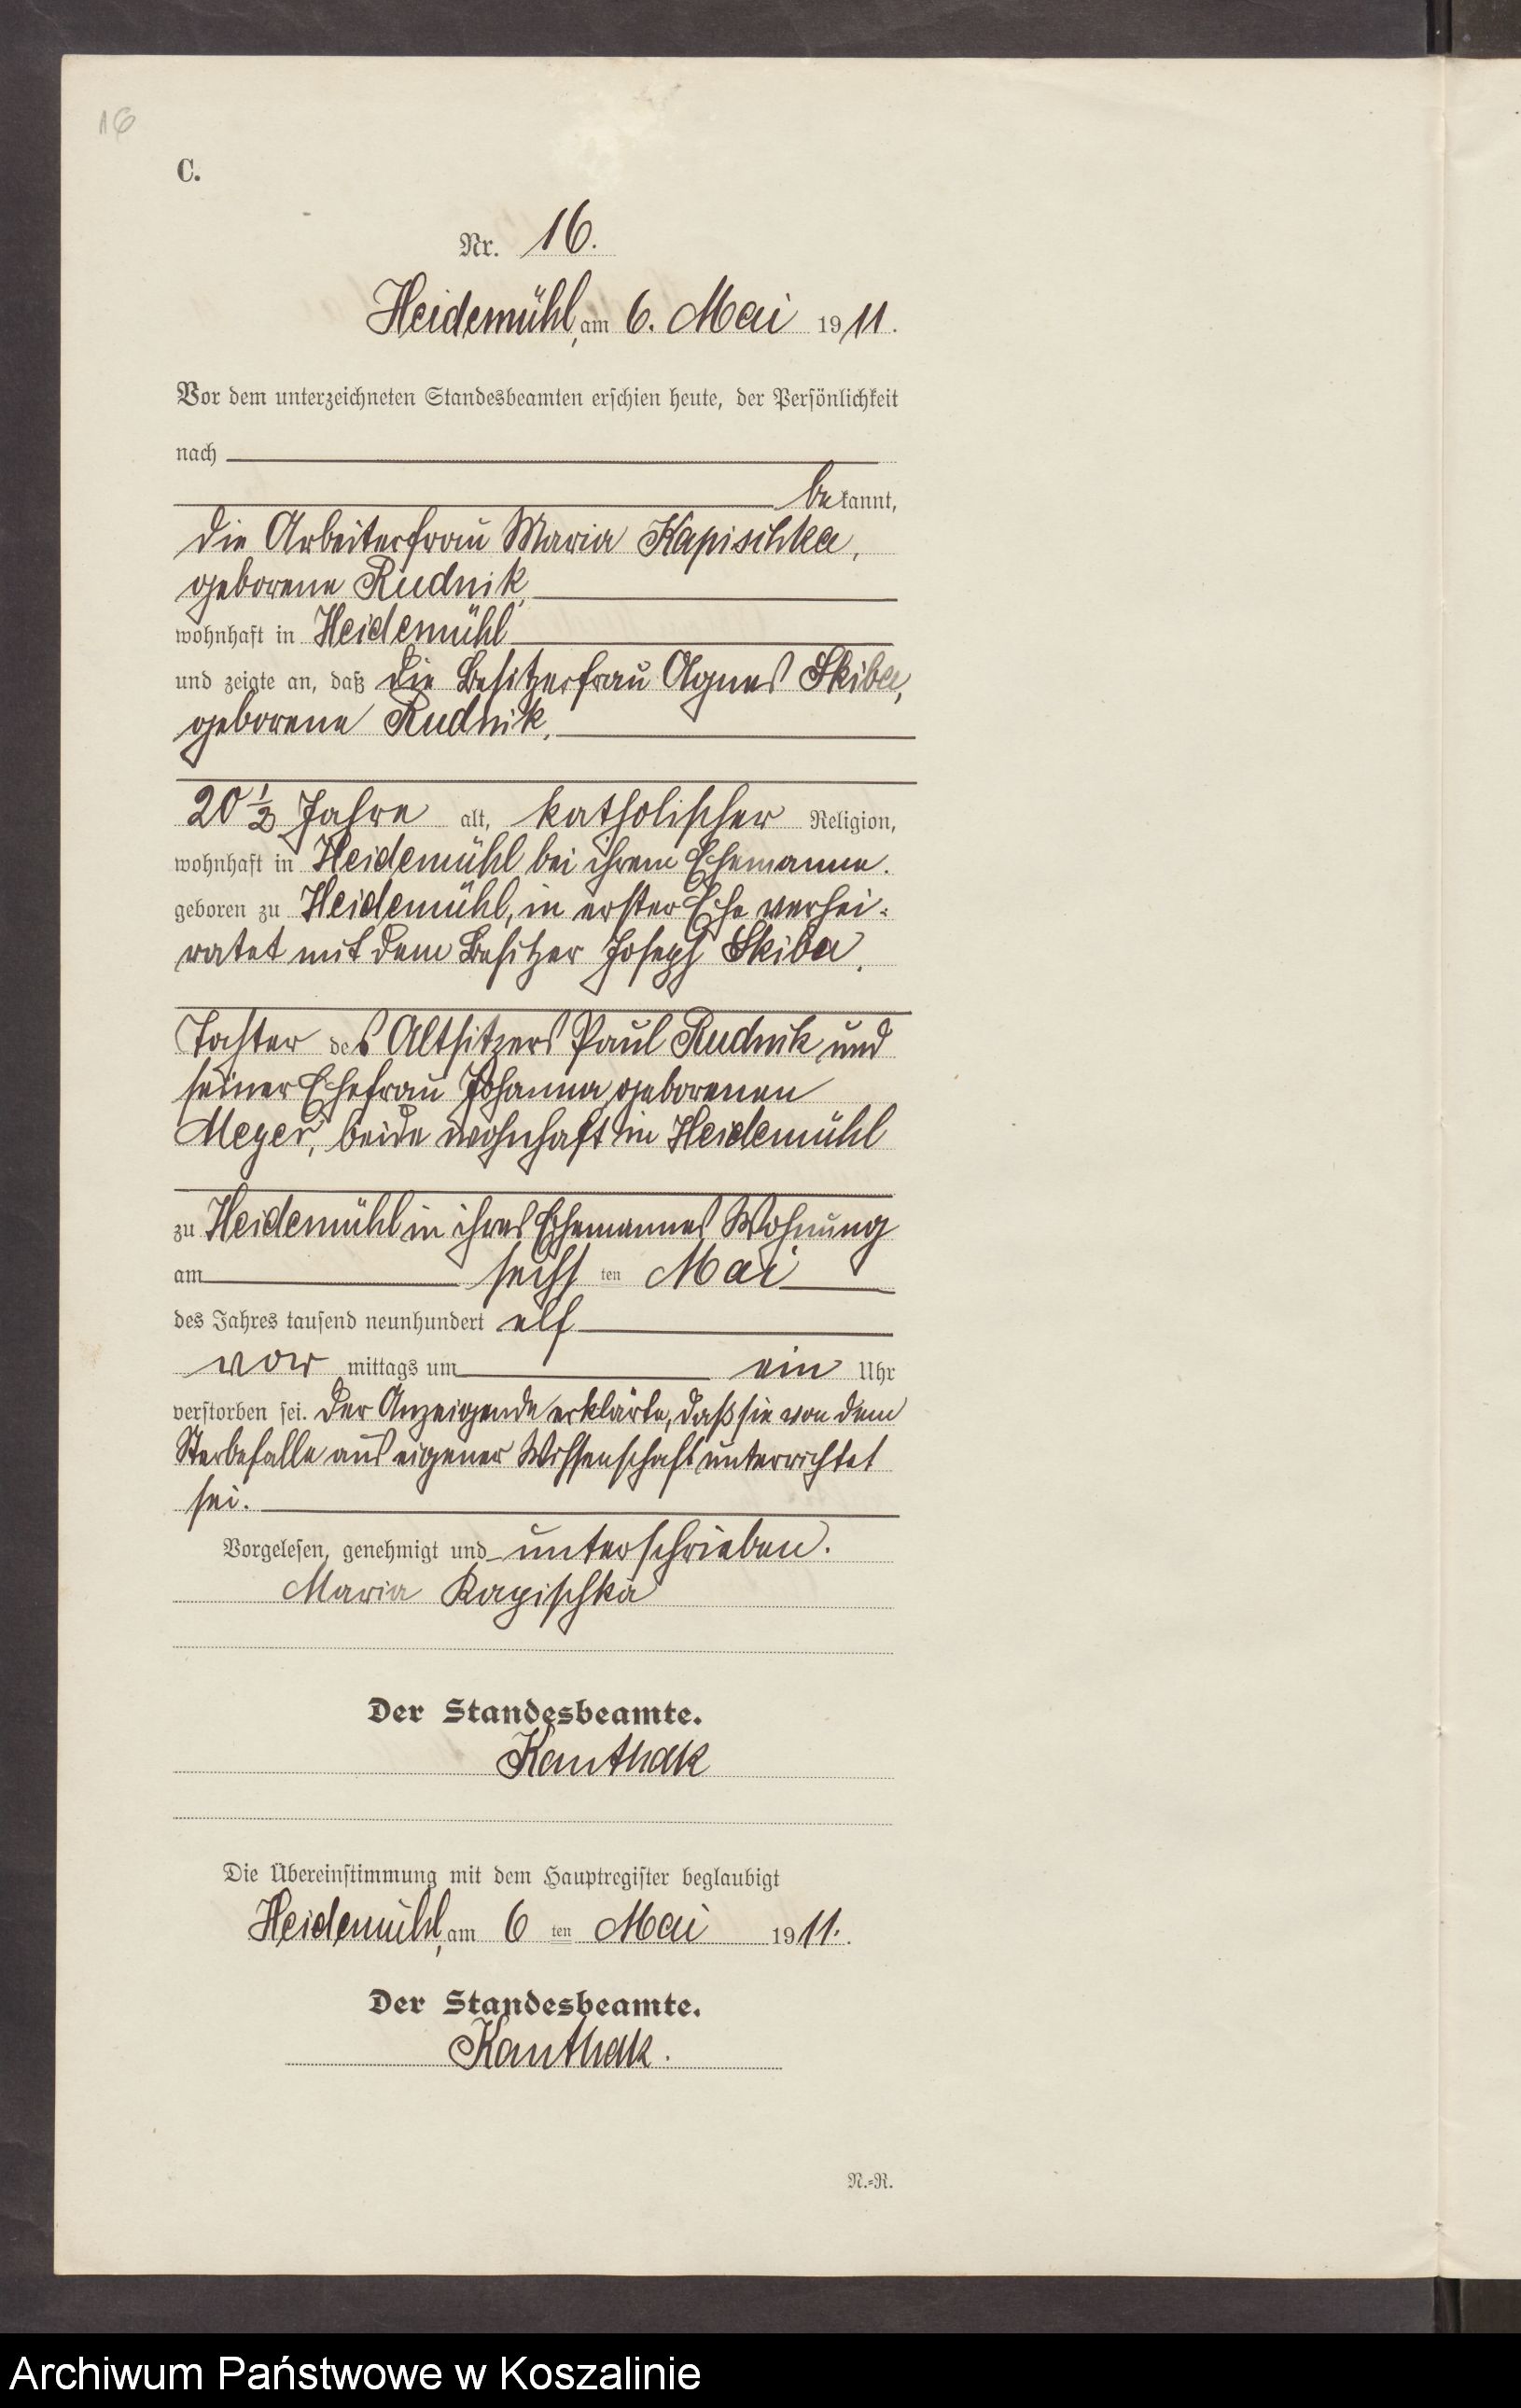 16
C.
Nr. 16.
Heidemühl, am 6. Mai 1911.
Vor dem unterzeichneten Standesbeamten erschien heute, der Persönlichkeit
nach
bekannt,
die Arbeiterfrau Maria Kapischka,
geborene Rudnik,
wohnhaft in Heidemühl
und zeigte an, daß die Besitzerfrau Agnes Skiba,
geborene Rudnik,
20 1/2 Jahre alt, katholischer Religion,
wohnhaft in Heidemühl bei ihrem Ehemanne.
geboren zu Heidemühl, in erster Ehe verhei-
ratet mit dem Besitzer Joseph Skiba,
Tochter des Altsitzers Paul Rudnik und
seiner Ehefrau Johanna, geborenen
Meyer, beide wohnhaft in Heidemühl
zu Heidemühl in ihres Ehemannes Wohnung
am sechsten Mai
des Jahres tausend neunhundert elf
vor mittags um ein Uhr
verstorben sei. Der Anzeigende erklärte, daß sie von dem
Sterbefalle aus eigener Wissenschaft unterrichtet
sei.
Vorgelesen, genehmigt und unterschrieben.
Maria Kapischka
Der Standesbeamte.
Kanthak
Die Übereinstimmung mit dem Hauptregister beglaubigt
Heidemühl, am 6 ten Mai 1911.
Der Standesbeamte.
Kanthak.
N.-R.
Archiwum Państwowe w Koszalinie